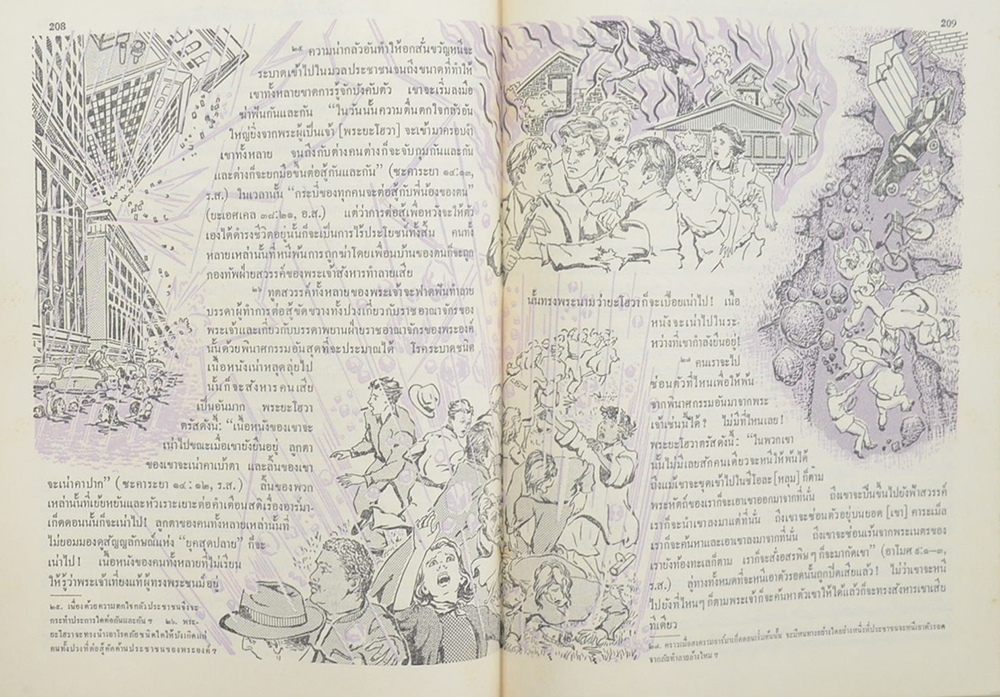 208
๒๕ ความน่ากลัวอันทำให้อกสั่นขวัญหนีจะ
ระบาดเข้าไปในมวลประชาชนจนถึงขนาดที่ทำให้
เขาทั้งหลายขาดการรู้จักบังคับตัว เขาจะเริ่มลงมือ
ฆ่าฟันกันและกัน "ในวันนั้นความตื่นตกใจกลัวอัน
ใหญ่ยิ่งจากพระผู้เป็นเจ้า [พระยะโฮวา] จะเข้ามาครอบงำ
เขาทั้งหลาย จนถึงกับต่างคนต่างก็จะจับกุมกันและกัน
และต่างก็จะยกมือขึ้นต่อสู้กันและกัน" (ซะคาระยา ๑๔:๑๓,
ร.ส.) ในเวลานั้น "กระบี่ของทุกคนจะต่อสู้กับพี่น้องของตน"
(ยะเอศเคล ๓๘:๒๑, อ.ส.) แต่ว่าการต่อสู้เพื่อหวังจะให้ตัว
เองได้ดำรงชีวิตอยู่นั้นก็จะเป็นการไร้ประโยชน์ทั้งสิ้น คนทั้ง
หลายเหล่านั้นที่หนีพ้นการถูกฆ่าโดยเพื่อนบ้านของตนก็จะถูก
กองทัพฝ่ายสวรรค์ของพระเจ้าสังหารทำลายเสีย
๒๖ ทูตสวรรค์ทั้งหลายของพระเจ้าจะฟาดฟันทำลาย
บรรดาผู้ทำการต่อสู้ขัดขวางทั้งปวงเกี่ยวกับราชอาณาจักรของ
พระเจ้าและเกี่ยวกับบรรดาพยานฝ่ายราชอาณาจักรของพระองค์
นั้นด้วยพินาศกรรมอันสุดที่จะประมาณได้ โรคระบาดชนิด
เนื้อหนังเน่าหลุดลุ่ยไป
นั้นก็จะสังหารคนเสีย
เป็นอันมาก พระยะโฮวา
ตรัสดังนี้: "เนื้อหนังของเขาจะ
เน่าไปขณะเมื่อเขายังยืนอยู่ ลูกตา
ของเขาจะเน่าคาเบ้าตา และลิ้นของเขา
จะเน่าคาปาก" (ซะคาระยา ๑๔:๑๒, ร.ส.) ลิ้นของพวก
เหล่านั้นที่เย้ยหยันและหัวเราะเยาะต่อคำเตือนสติเรื่องอาร์มา-
เก็ดดอนนั้นก็จะเน่าไป! ลูกตาของคนทั้งหลายเหล่านั้นที่
ไม่ยอมมองดูสัญญลักษณ์แห่ง "ยุคสุดปลาย" ก็จะ
เน่าไป! เนื้อหนังของคนทั้งหลายที่ไม่เรียน
ให้รู้ว่าพระเจ้าเที่ยงแท้ผู้ทรงพระชนม์อยู่
๒๕. เนื่องด้วยความตกใจกลัวประชาชนจึงจะ
กระทำประการใดต่อกันและกัน? ๒๖. พระ-
ยะโฮวาจะทรงนำเอาโรคภัยชนิดใดให้บังเกิดแก่
คนทั้งปวงที่ต่อสู้คัดค้านประชาชนของพระองค์?
209
นั้นทรงพระนามว่ายะโฮวาก็จะเปื่อยเน่าไป! เนื้อ
หนังจะเน่าไปในระ-
หว่างที่เขากำลังยืนอยู่!
๒๗ คนเราจะไป
ซ่อนตัวที่ไหนเพื่อให้พ้น
จากพินาศกรรมอันมาจากพระ
เจ้าเช่นนี้ได้? ไม่มีที่ไหนเลย!
พระยะโฮวาตรัสดังนี้: "ในพวกเขา
นั้นไม่มีเลยสักคนเดียวจะหนีให้พ้นได้
ถึงแม้เขาจะขุดเข้าไปในชีโอละ [หลุม] ก็ตาม
พระหัตถ์ของเราก็จะเอาเขาออกมาจากที่นั่น ถึงเขาจะปีนขึ้นไปยังฟ้าสวรรค์
เราก็จะนำเขาลงมาแต่ที่นั่น ถึงเขาจะซ่อนตัวอยู่บนยอด [เขา] คาระเม็ล
เราก็จะค้นหาและเอาเขาลงมาจากที่นั่น ถึงเขาจะซ่อนเร้นจากพระเนตรของ
เรายังท้องทะเลก็ตาม เราก็จะสั่งอสรพิษๆ ก็จะมากัดเขา" (อาโมศ ๙:๑–๓,
ร.ส.) ลู่ทางทั้งหมดที่จะหนีเอาตัวรอดนั้นถูกปิดเสียแล้ว! ไม่ว่าเขาจะหนี
ไปยังที่ไหนๆ ก็ตามพระเจ้าก็จะค้นหาตัวเขาให้ได้แล้วก็จะทรงสังหารเขาเสีย
ที่เดียว
๒๗. คราวเมื่อสงครามอาร์มาเก็ดดอนเริ่มต้นนั้น จะมีหนทางอย่างใดอย่างหนึ่งที่ประชาชนจะหนีเอาตัวรอด
จากภัยทำลายล้างไหม?